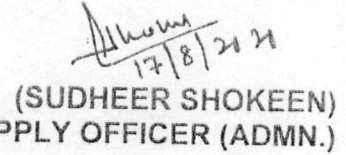 17/8/2020
(SUDHEER SHOKEEN)
PPLY OFFICER (ADMN.)